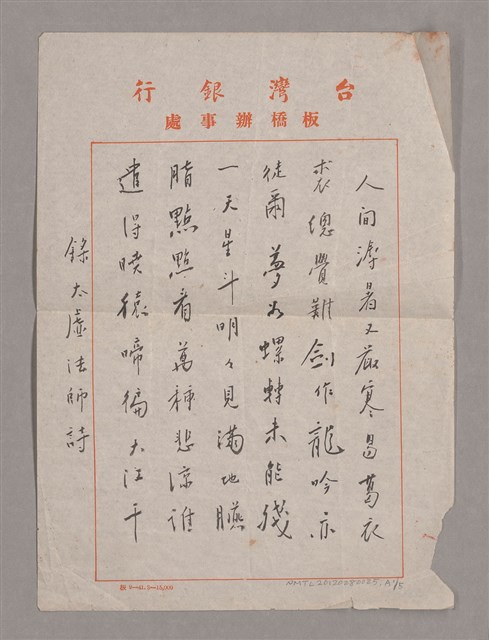 台灣銀行
板橋辦事處
人間溽暑又嚴寒易葛衣
裘總覺難劍作龍吟亦
徒爾夢如螺轉未能殘
一天星斗明々見滿地臙
脂點點看萬種悲涼誰
遣得暁猿啼徧大江干
錄太虛法師詩
NMTL20120280125